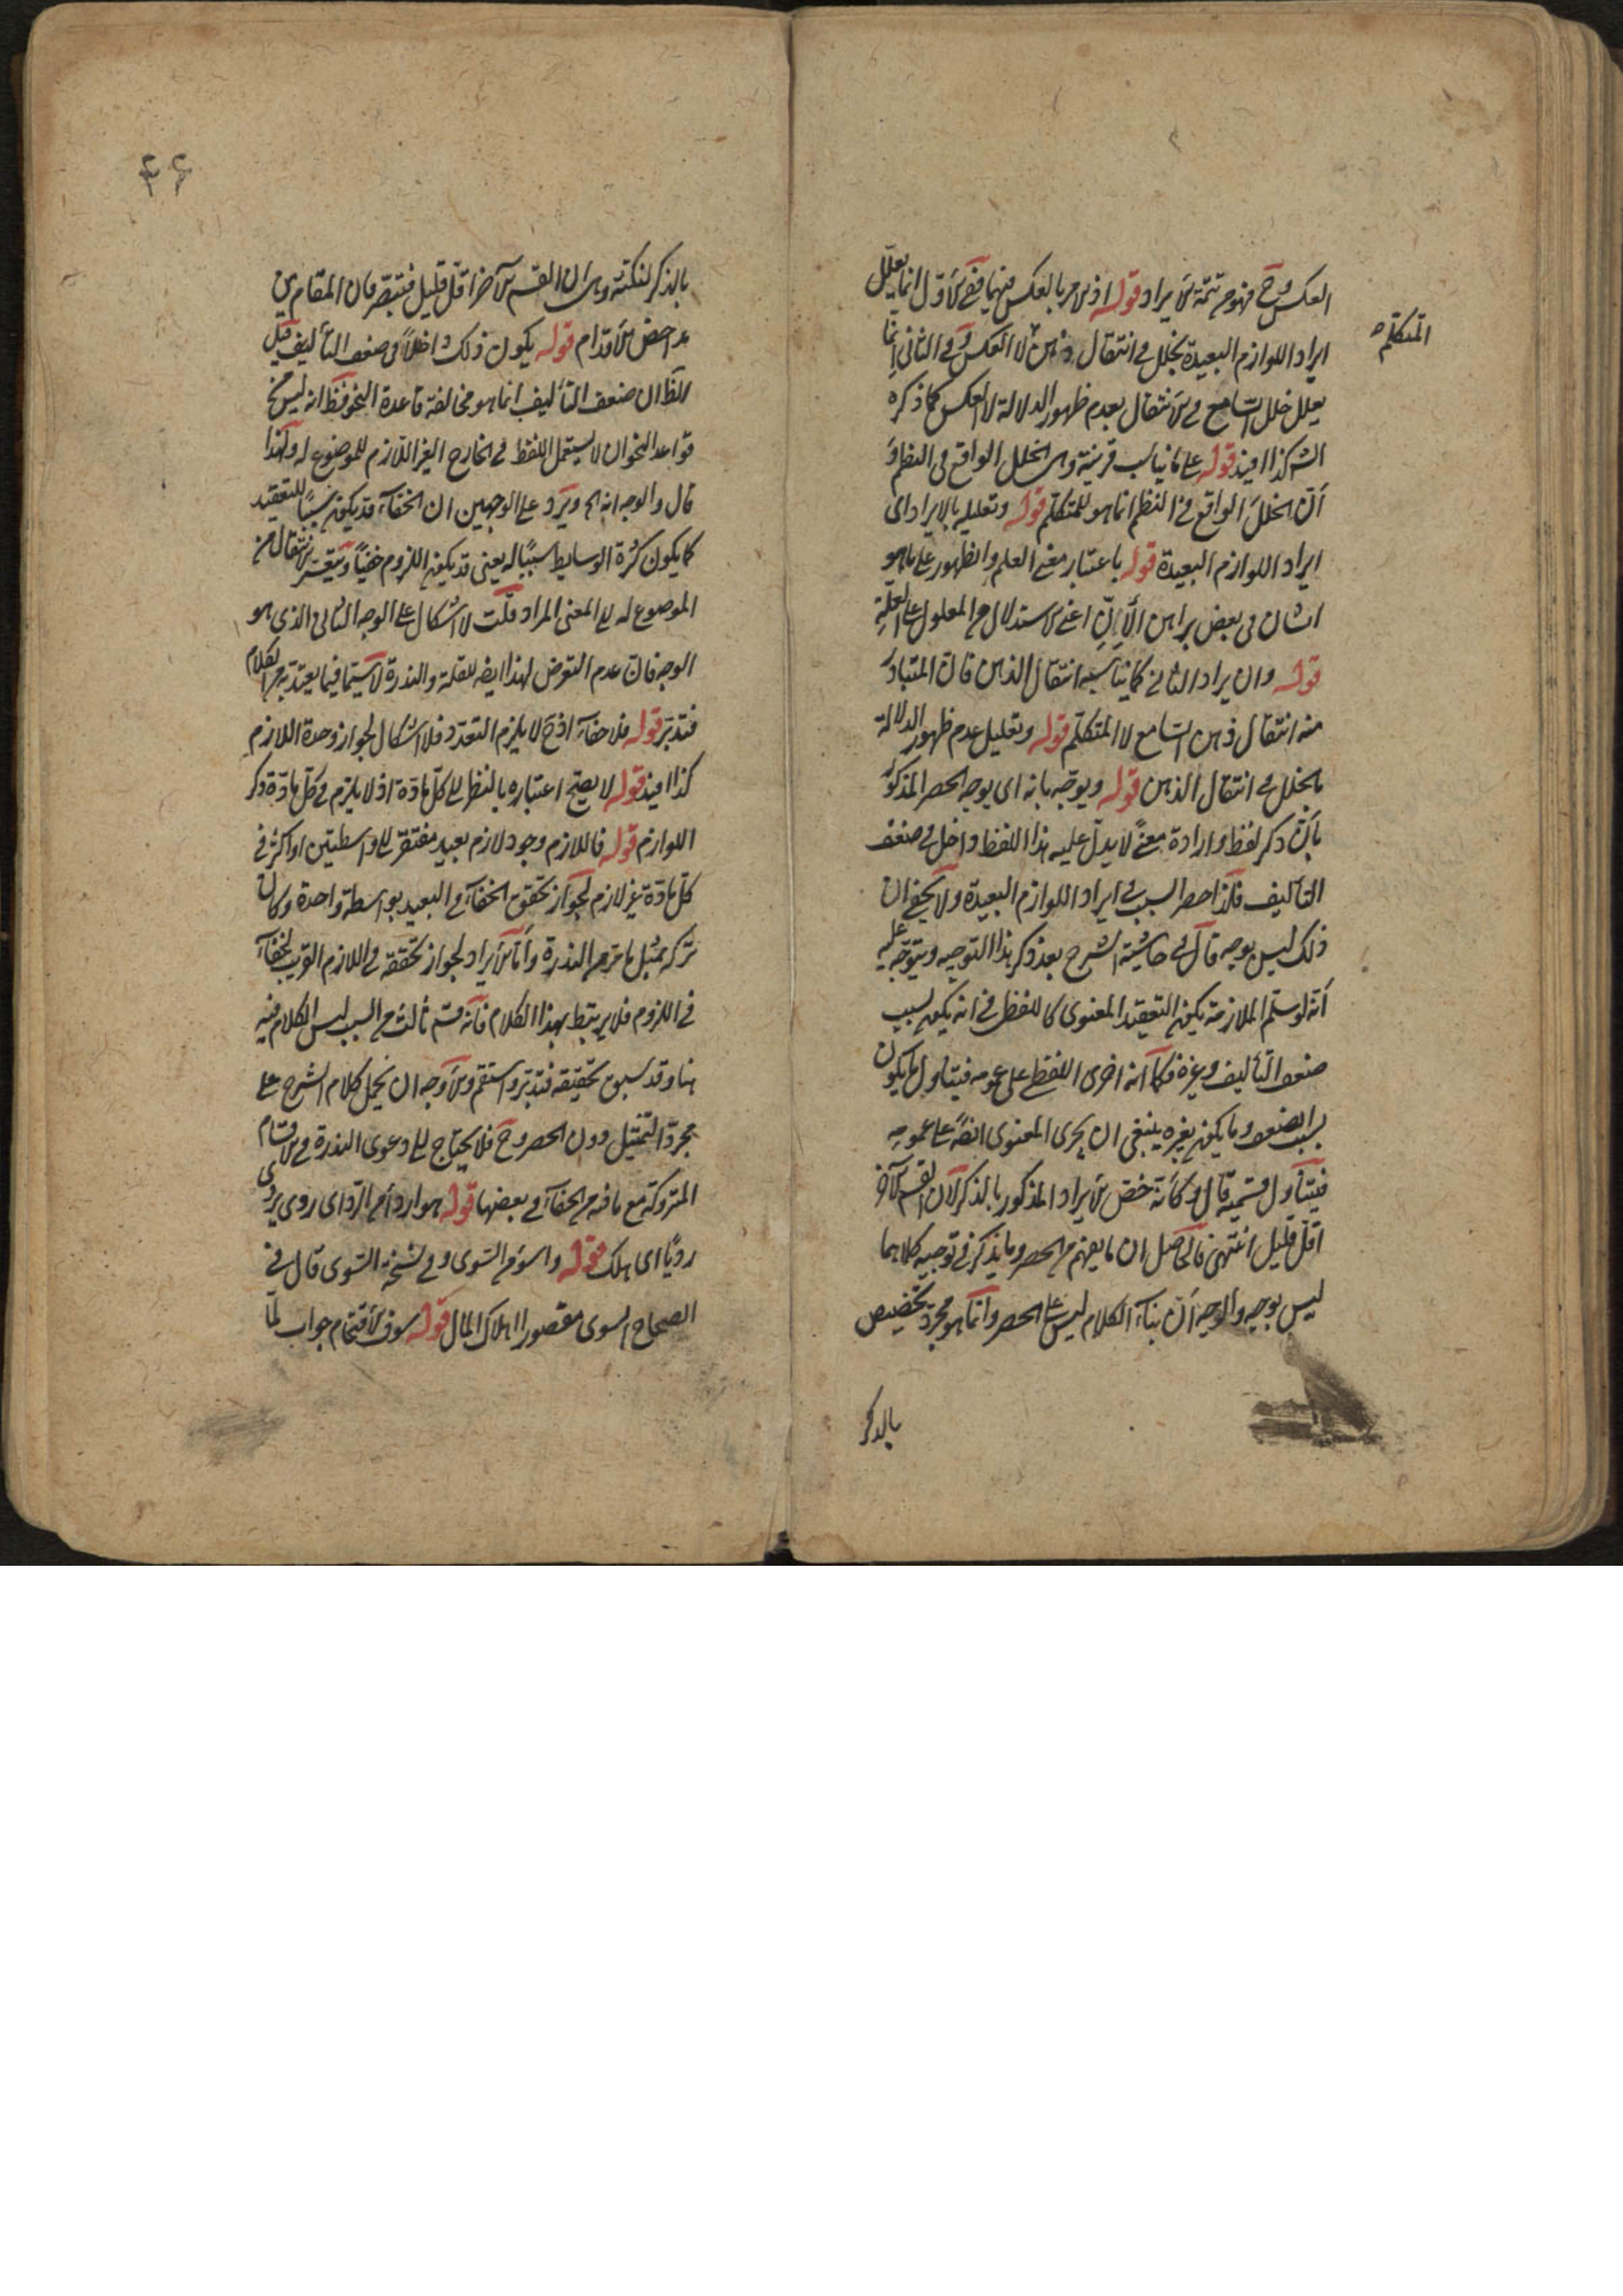 العكس وح فهو تتمة الايراد قوله اذ الامر بالعكس فيهما ففي الاول انما يعلل
ايراد اللوازم البعيدة بخلل في انتقال ذهن لا العكس وفي الثاني انما
المتكلم
يعلل خلل السامع في الانتقال بعدم ظهور الدلالة لا العكس كما ذكره
الش كذا افيد قوله على ما يناسب قرينة وهي الخلل الواقع في النظم و
ان الخلل الواقع في النظم انما هو للمتكلم قوله وتعليله بالايراد اى
ايراد اللوازم البعيدة قوله باعتبار معنى العلم والظهور على ما هو
الشان في بعض براهين الان اعنى الاستدلال من المعلول على العلة
قوله وان يراد الثاني كما يناسبه انتقال الذهن فان المتبادر
منه انتقال ذهن السامع لا المتكلم قوله وتعليل عدم ظهور الدلالة
بالخلل في انتقال الذهن قوله ويوجه بانه اى يوجه الحصر المذكور
بان ذكر لفظ وارادة معنى لا يدل عليه هذا اللفظ داخل في ضعف
التأليف فلذا حصر السبب في ايراد اللوازم البعيدة ولا يخفى ان
ذلك ليس بوجه قال في حاشية الشرح بعد ذكر هذا التوجيه ويتوجه عليه
انه لو سلم الملازمة يكون التعقيد المعنوى كاللفظى في انه يكون بسبب
ضعف التأليف وبغيره فكما انه اجرى اللفظ على عمومه فيتناول ما يكون
بسبب الضعف وما يكون بغيره ينبغى ان يجرى المعنوى ايضا على عمومه
فيتناول قسميه قال وكأنه خص الايراد المذكور بالذكر لان القسم الآخر
اقل قليل انتهى فالحاصل ان ما يفهم من الحصر وما يذكر في توجيهه كلاهما
ليس بوجه والوجه ان بناء الكلام ليس على الحصر وانما هو مجرد تخصيص
بالذكر
٤٦
بالذكر لنكتة وهي ان القسم الآخر اقل قليل فتبصر فان المقام من
مداحض الاقدام قوله يكون ذلك داخلا في ضعف التأليف قيل
الظ ان ضعف التأليف انما هو مخالفة قاعدة النحو فقط انه ليس من
قواعد النحو ان لا يستعمل اللفظ في الخارج الغير اللازم للموضوع له ولهذا
قال والوجه انه الخ ويرد على الوجهين ان الخفاء قد يكون سببا للتعقيد
كما يكون كثرة الوسايط سببا له يعنى قد يكون اللزوم خفيا ويتعسر الانتقال من
الموضوع له الى المعنى المراد قلت لا اشكال على الوجه الثاني الذى هو
الوجه فان عدم التعرض لهذا ايضا للقلة والندرة لا سيما فيما يعتد به من الكلام
فتدبر قوله فلا خفاء اذ ح لا يلزم التعدد فلا اشكال لجواز وحدة اللازم
كذا افيد قوله لا يصح اعتباره بالنظر الى كل مادة اذ لا يلزم في كل مادة ذكر
اللوازم قوله فاللازم وجود لازم بعيد مفتقر الى واسطتين او اكثر في
كل مادة غير لازم لجواز تحقق الخفاء في البعيد بواسطة واحدة وكان
تركه بمثل ما مر من الندرة واما الايراد لجواز تحققه في اللازم القريب لخفاء
في اللزوم فلا يرتبط بهذا الكلام فانه قسم ثالث من السبب ليس الكلام فيه
هنا وقد سبق تحقيقه فتدبر واستقم والاوجه ان يحمل كلام الشرح على
مجرد التمثيل دون الحصر وح فلا يحتاج الى دعوى الندرة في الاقسام
المتروكة مع ما فيه من الخفاء في بعضها قوله هو اردأ من الردى اى ردى يردى
رديا اى هلك قوله واسوء من السوى وفي نسخة التوى قال في
الصحاح التوى مقصورا اهلاك المال قوله سوف الاقتحام جواب لما